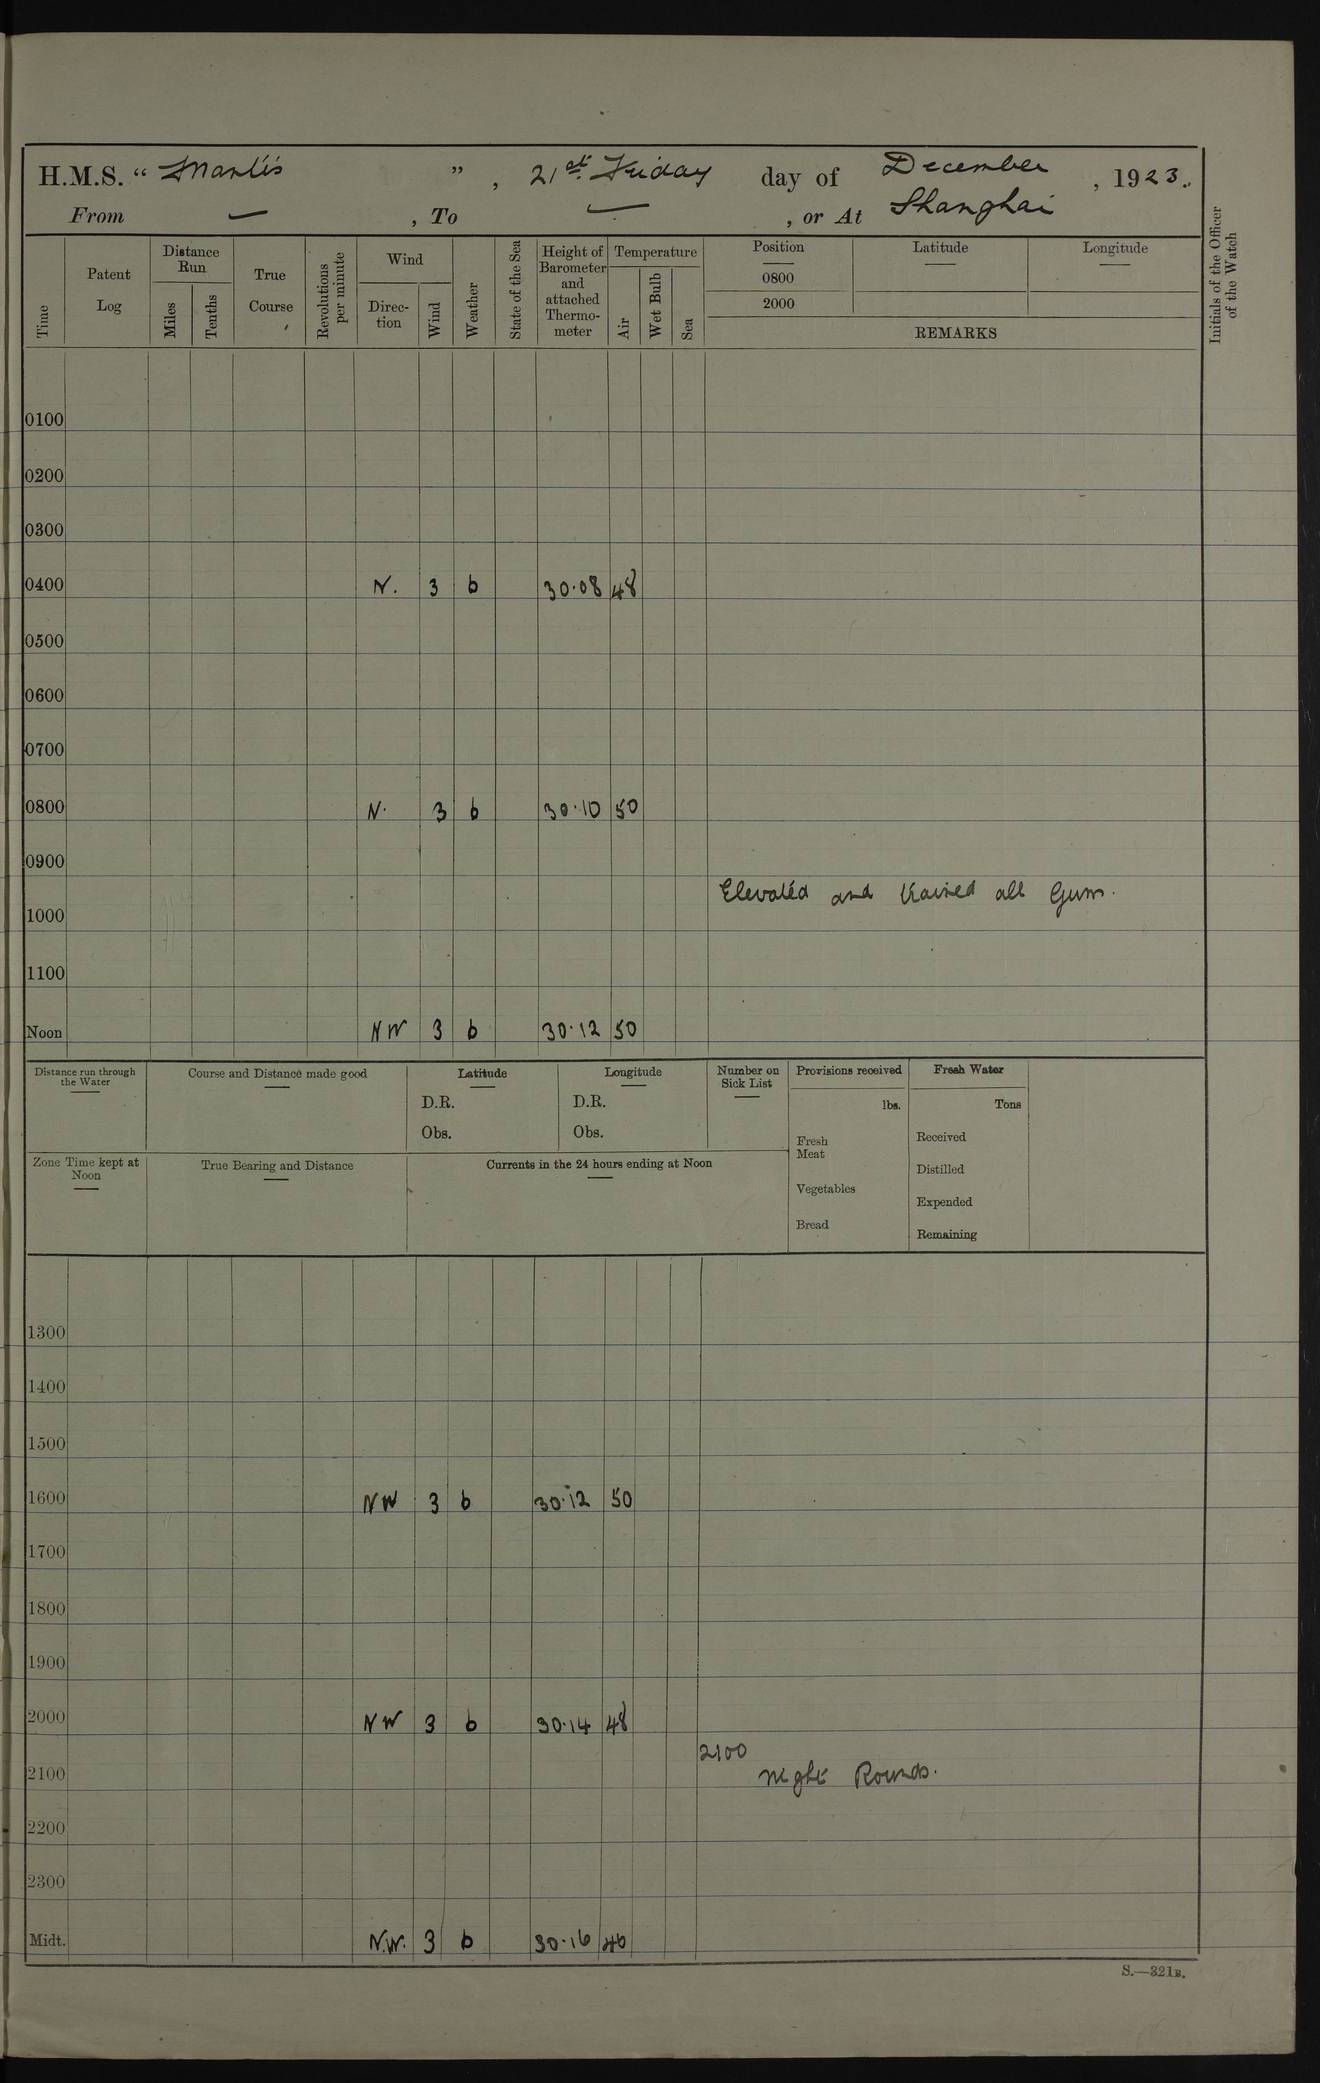 H.M.S. “ Mantis ” , 21st Friday day of December , 1923.
From — , To — , or At Shanghai
Time
Patent Log
Distance Run
Miles
Tenths
True Course
Revolutions per minute
Wind
Direc-tion
Wind
Weather
State of the Sea
Height of Barometer and attached Thermo-meter
Temperature
Air
Wet Bulb
Sea
Position
0800
2000
Latitude
Longitude
REMARKS
Initials of the Officer of the Watch
0100
0200
0300
0400 N. 3 b 30·08 48
0500
0600
0700
0800 N. 3 b 30·10 50
0900
Elevated and trained all Guns.
1000
1100
Noon NW 3 b 30·12 50
Distance run through the Water
Course and Distance made good
Latitude
D.R.
Obs.
Longitude
D.R.
Obs.
Number on Sick List
Provisions received
lbs.
Fresh Meat
Vegetables
Bread
Fresh Water
Tons
Received
Distilled
Expended
Remaining
Zone Time kept at Noon
True Bearing and Distance
Currents in the 24 hours ending at Noon
1300
1400
1500
1600 NW 3 b 30·12 50
1700
1800
1900
2000 NW 3 b 30·14 48
2100
2100 Night Rounds.
2200
2300
Midt. N.W. 3 b 30·16 46
S.—321B.